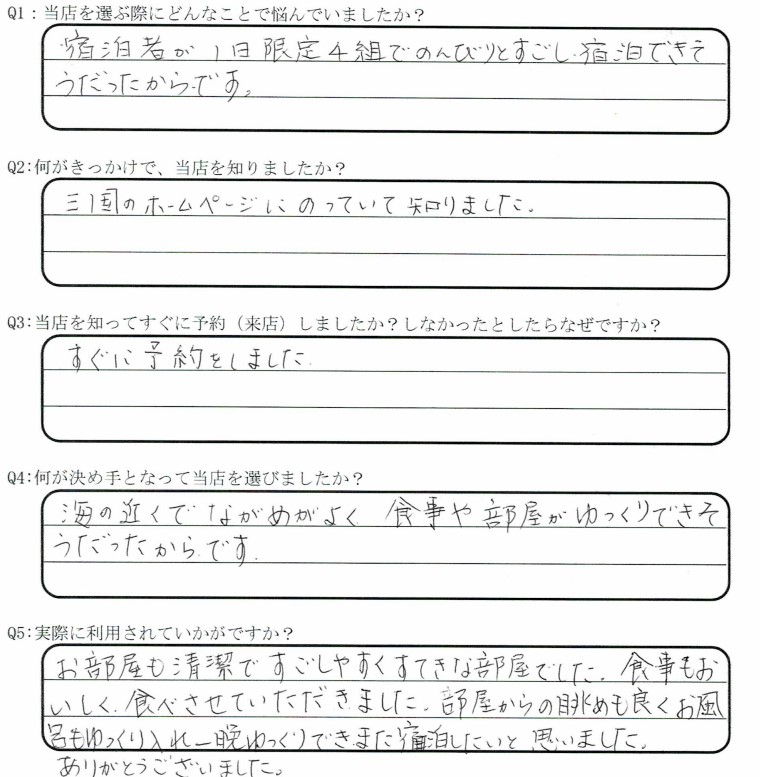 Q1：当店を選ぶ際にどんなことで悩んでいましたか？
宿泊者が1日限定4組でのんびりとすごし宿泊できそ
うだったからです。
Q2:何がきっかけで、当店を知りましたか？
三国のホームページにのっていて知りました。
Q3:当店を知ってすぐに予約（来店）しましたか？しなかったとしたらなぜですか？
すぐに予約をしました。
Q4:何が決め手となって当店を選びましたか？
海の近くでながめがよく 食事や部屋がゆっくりできそ
うだったからです。
Q5:実際に利用されていかがですか？
お部屋も清潔ですごしやすくすてきな部屋でした。食事もお
いしく食べさせていただきました。部屋からの眺めも良くお風
呂もゆっくり入れ一晩ゆっくりできまた宿泊したいと思いました。
ありがとうございました。